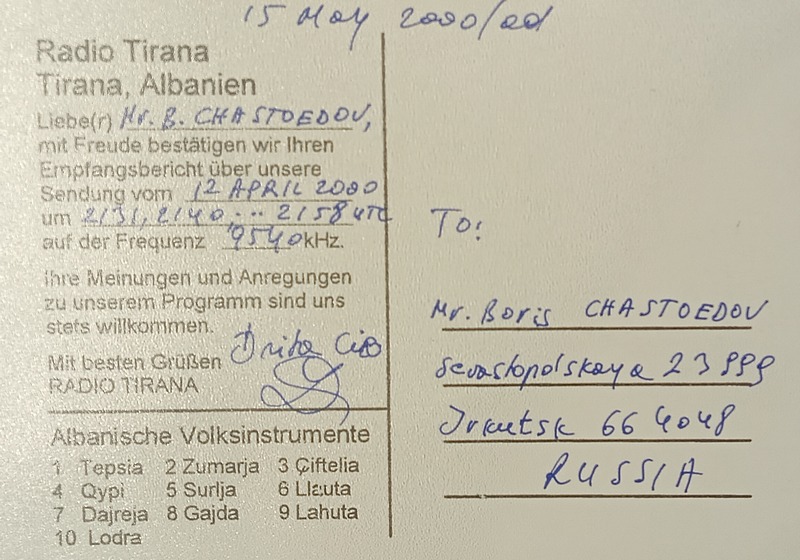 15 May 2000/ad
Radio Tirana
Tirana, Albanien
Liebe(r) Mr. B. CHASTOEDOV,
mit Freude bestätigen wir Ihren
Empfangsbericht über unsere
Sendung vom 12 APRIL 2000
um 2131, 2140, ... 2158 UTC
auf der Frequenz 9540 kHz.
Ihre Meinungen und Anregungen
zu unserem Programm sind uns
stets willkommen.
Drita Cico
Mit besten Grüßen
RADIO TIRANA
Albanische Volksinstrumente
1 Tepsia 2 Zumarja 3 Çiftelia
4 Qypi 5 Surlja 6 Llauta
7 Dajreja 8 Gajda 9 Lahuta
10 Lodra
To:
Mr. Boris CHASTOEDOV
Sevastopolskaya 23 999
Irkutsk 664048
RUSSIA